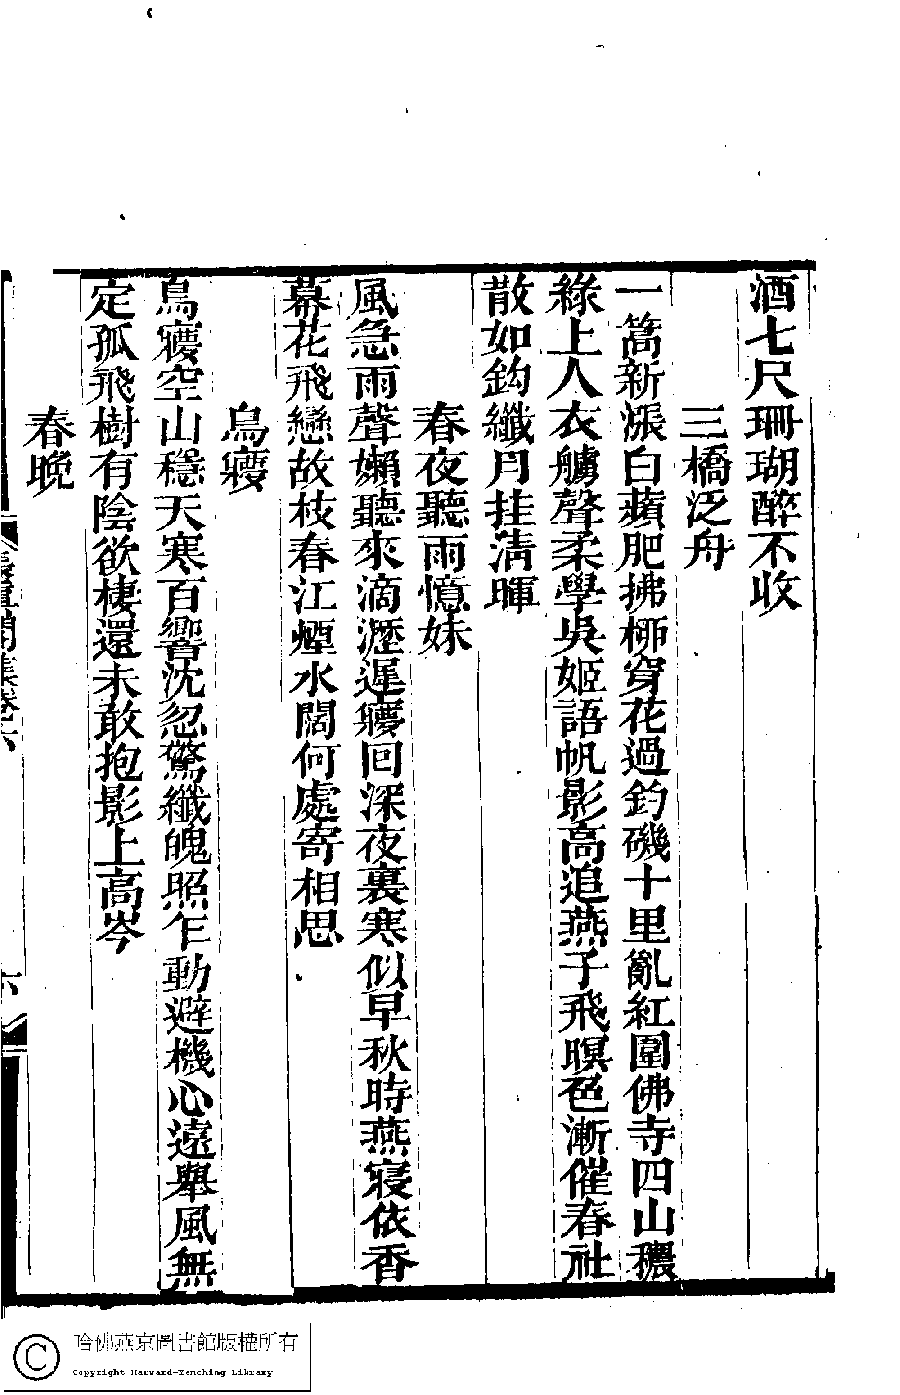 酒七尺珊瑚醉不收
三橋泛舟
一篙新漲白蘋肥拂桺穿花過釣磯十里亂紅圍佛寺四山穠
綠上人衣艣聲柔學吳姬語帆影高追燕子飛暝色漸催春社
散如鈎纖月挂淸暉
春夜聽雨憶妹
風急雨聲嬾聽來滴瀝遲㝱回深夜裏寒似早秋時燕寢依香
幕花飛戀故枝春江煙水闊何處寄相思
鳥㝱
鳥㝱空山穩天寒百響沈忽驚纖魄照乍動避機心遠舉風無
定孤飛樹有陰欲棲還未敢抱影上高岑
春晚
集卷六
六
哈佛燕京圖書館版權所有
Copyright Harvard-Yenching Library